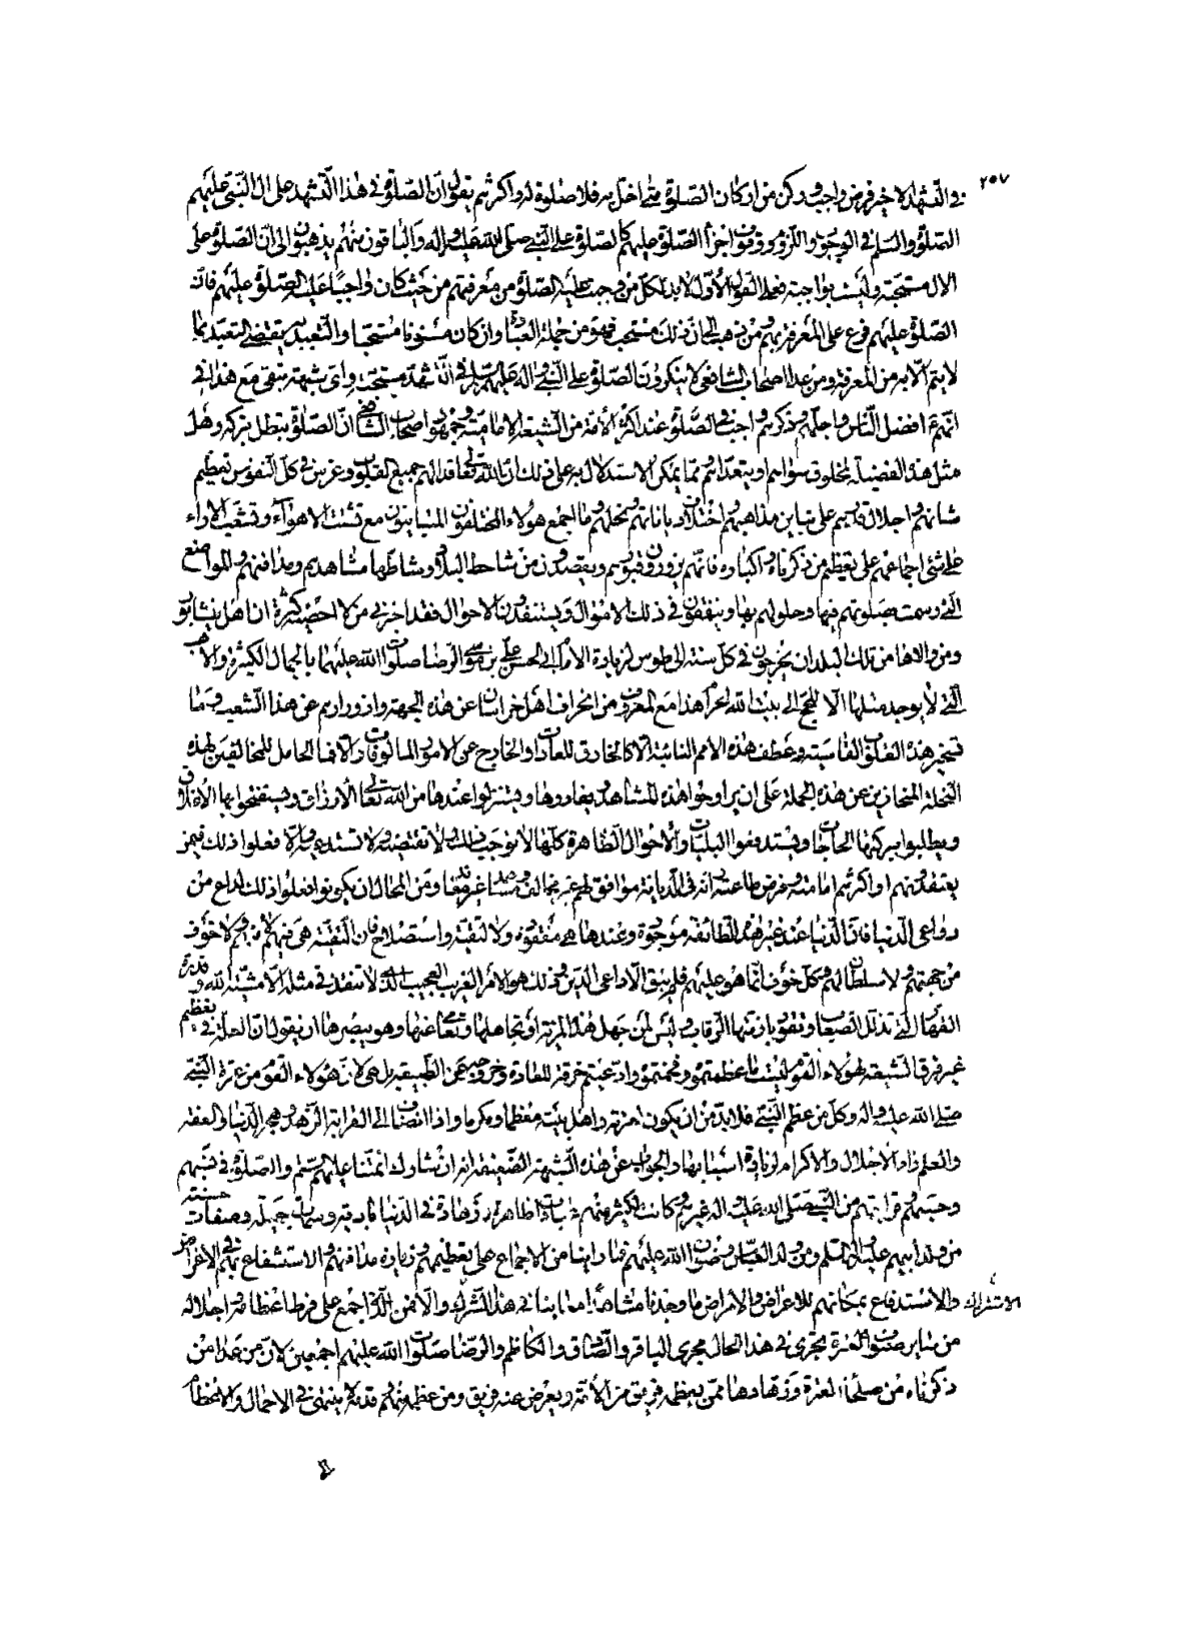 ٢٥٧
في التشهد الاخير فرض واجب وركن من اركان الصلوة متى اخل به فلا صلوة له واكثرهم يقول ان الصلوة في هذا التشهد على ال النبي عليهم
الصلوة والسلم في الوجوب واللزوم ووقوف اجزاء الصلوة عليهم كالصلوة على النبي صلى الله عليه واله والباقون منهم يذهبون الى ان الصلوة على
الال مستحبة وليست بواجبة فعلى القول الأول لا بد لكل من وجبت عليه الصلوة من معرفتهم من حيث كان واجبا عليه الصلوة عليهم فان
الصلوة عليهم فرع على المعرفة بهم ومن ذهب الى ان ذلك مستحب فهو من جملة العبادة وان كان مسنونا مستحبا والتعبد به يقتضي التعبد بما
لا يتم الا به من المعرفة ومن عدا اصحاب الشافعي لا ينكرون ان الصلوة على النبي واله عليهم السلم في التشهد مستحبة واي شبهة تبقى مع هذا في
انهم ع افضل الناس واجلهم وذكرهم واجب في الصلوة عند اكثر الأمة من الشيعة الامامية وجمهور اصحاب الشافعي ان الصلوة تبطل بتركه وهل
مثل هذه الفضيلة لمخلوق سواهم او يتعداهم مما يمكن الاستدلال به على ذلك ان الله تعالى قد الهم جميع القلوب وغرس في كل النفوس تعظيم
شانهم واجلال قدرهم على تباين مذاهبهم واختلاف دياناتهم ونحلهم وما اجمع هؤلاء المختلفون المتباينون مع تشتت الاهواء وتشعب الاراء
على شئ اجماعهم على تعظيم من ذكرناه واكباره فانهم يزورون قبورهم ويقصدون من شاحط البلاد وشاطئها مشاهدهم ومدافنهم والمواضع
التي وسمت بصلوتهم فيها وحلولهم بها وينفقون في ذلك الاموال ويستنفدون الاحوال فقد اخبرني من لا احصيه كثرة ان اهل نيسابور
ومن والاها من تلك البلدان يخرجون في كل سنة الى طوس لزيارة الامام ابي الحسن علي بن موسى الرضا صلوات الله عليهما بالجمال الكثيرة والاهب
التي لا يوجد مثلها الا للحج الى بيت الله الحرام هذا مع المعروف من انحراف اهل خراسان عن هذه الجهة وازورارهم عن هذا الشعب وما
تسخير هذه القلوب القاسية وعطف هذه الامم النائية الا كالخارق للعادات والخارج عن الامور المالوفات والا فما الحامل للمخالفين لهذه
النحلة المنحازين عن هذه الجملة على ان يراوحوا هذه المشاهد ويغادوها ويستنزلوا عندها من الله تعالى الارزاق ويستفتحوا بها الأغلاق
ويطلبوا ببركتها الحاجات ويستدفعوا البليات والأحوال الظاهرة كلها لا توجب ذلك ولا تقتضيه ولا تستدعيه والا فعلوا ذلك فيمن
يعتقدونهم او اكثرهم امامته وفرض طاعته وانه في الديانة موافق لهم غير مخالف ومساعد غير معاند ومن المحال ان يكونوا فعلوا ذلك لداع من
دواعي الدنيا فان الدنيا عند غير هذه الطائفة موجودة وعندها هي مفقودة ولا لتقية واستصلاح فان التقية هي فيهم لا منهم ولا خوف
من جهتهم ولا سلطان لهم وكل خوف انما هو عليهم فلم يبق الا داعي الدين وذلك هو الامر الغريب العجيب الذي لا تنفذ في مثله الا مشية الله وقدرة
القهار التي تذلل الصعاب وتقود بازمتها الرقاب وليس لمن جهل هذه المزية او تجاهلها وتعامى عنها وهو يبصرها ان يقول ان العلة في تعظيم
غير فرق الشيعة لهؤلاء القوم ليست ما عظمتموه وفخمتموه وادعيتم خرقه للعادة وخروجه عن الطبيعة بل هي لان هؤلاء القوم من عترة النبي
صلى الله عليه واله وكل من عظم النبي فلا بد من ان يكون لعترته واهل بيته معظما ومكرما واذا انضاف الى القرابة الزهد وهجر الدنيا والعفة
والعلم زاد الاجلال والاكرام لزيادة اسبابها والجواب عن هذه الشبهة الضعيفة انه ان شارك ائمتنا عليهم السلم والصلوة في نسبهم
وحسبهم وقرابتهم من النبي صلى الله عليه واله غيرهم وكانت لكثير منهم عبادات ظاهرة وزهادة في الدنيا بادية وسمات جميلة وصفات حسنة
من ولد ابيهم عليه واله السلم ومن ولد العباس رضوان الله عليهم فما راينا من الاجماع على تعظيمهم وزيارة مدافنهم والاستشفاع بهم في الاغراض
والاستدفاع بمكانهم للاعراض والامراض ما وجدنا مشاهدا معاينا في هذا الشرك والا فمن الذي اجمع على فرط اعظامه واجلاله
الاشتراك
من سائر صنوف العترة يجري في هذا الحال مجرى الباقر والصادق والكاظم والرضا صلوات الله عليهم اجمعين لان من عدا من
ذكرناه من صلحاء العترة وزهادها ممن يعظمه فريق من الأمة ويعرض عنه فريق ومن عظمه منهم وقدمه لا ينتهى في الاجلال والاعظام